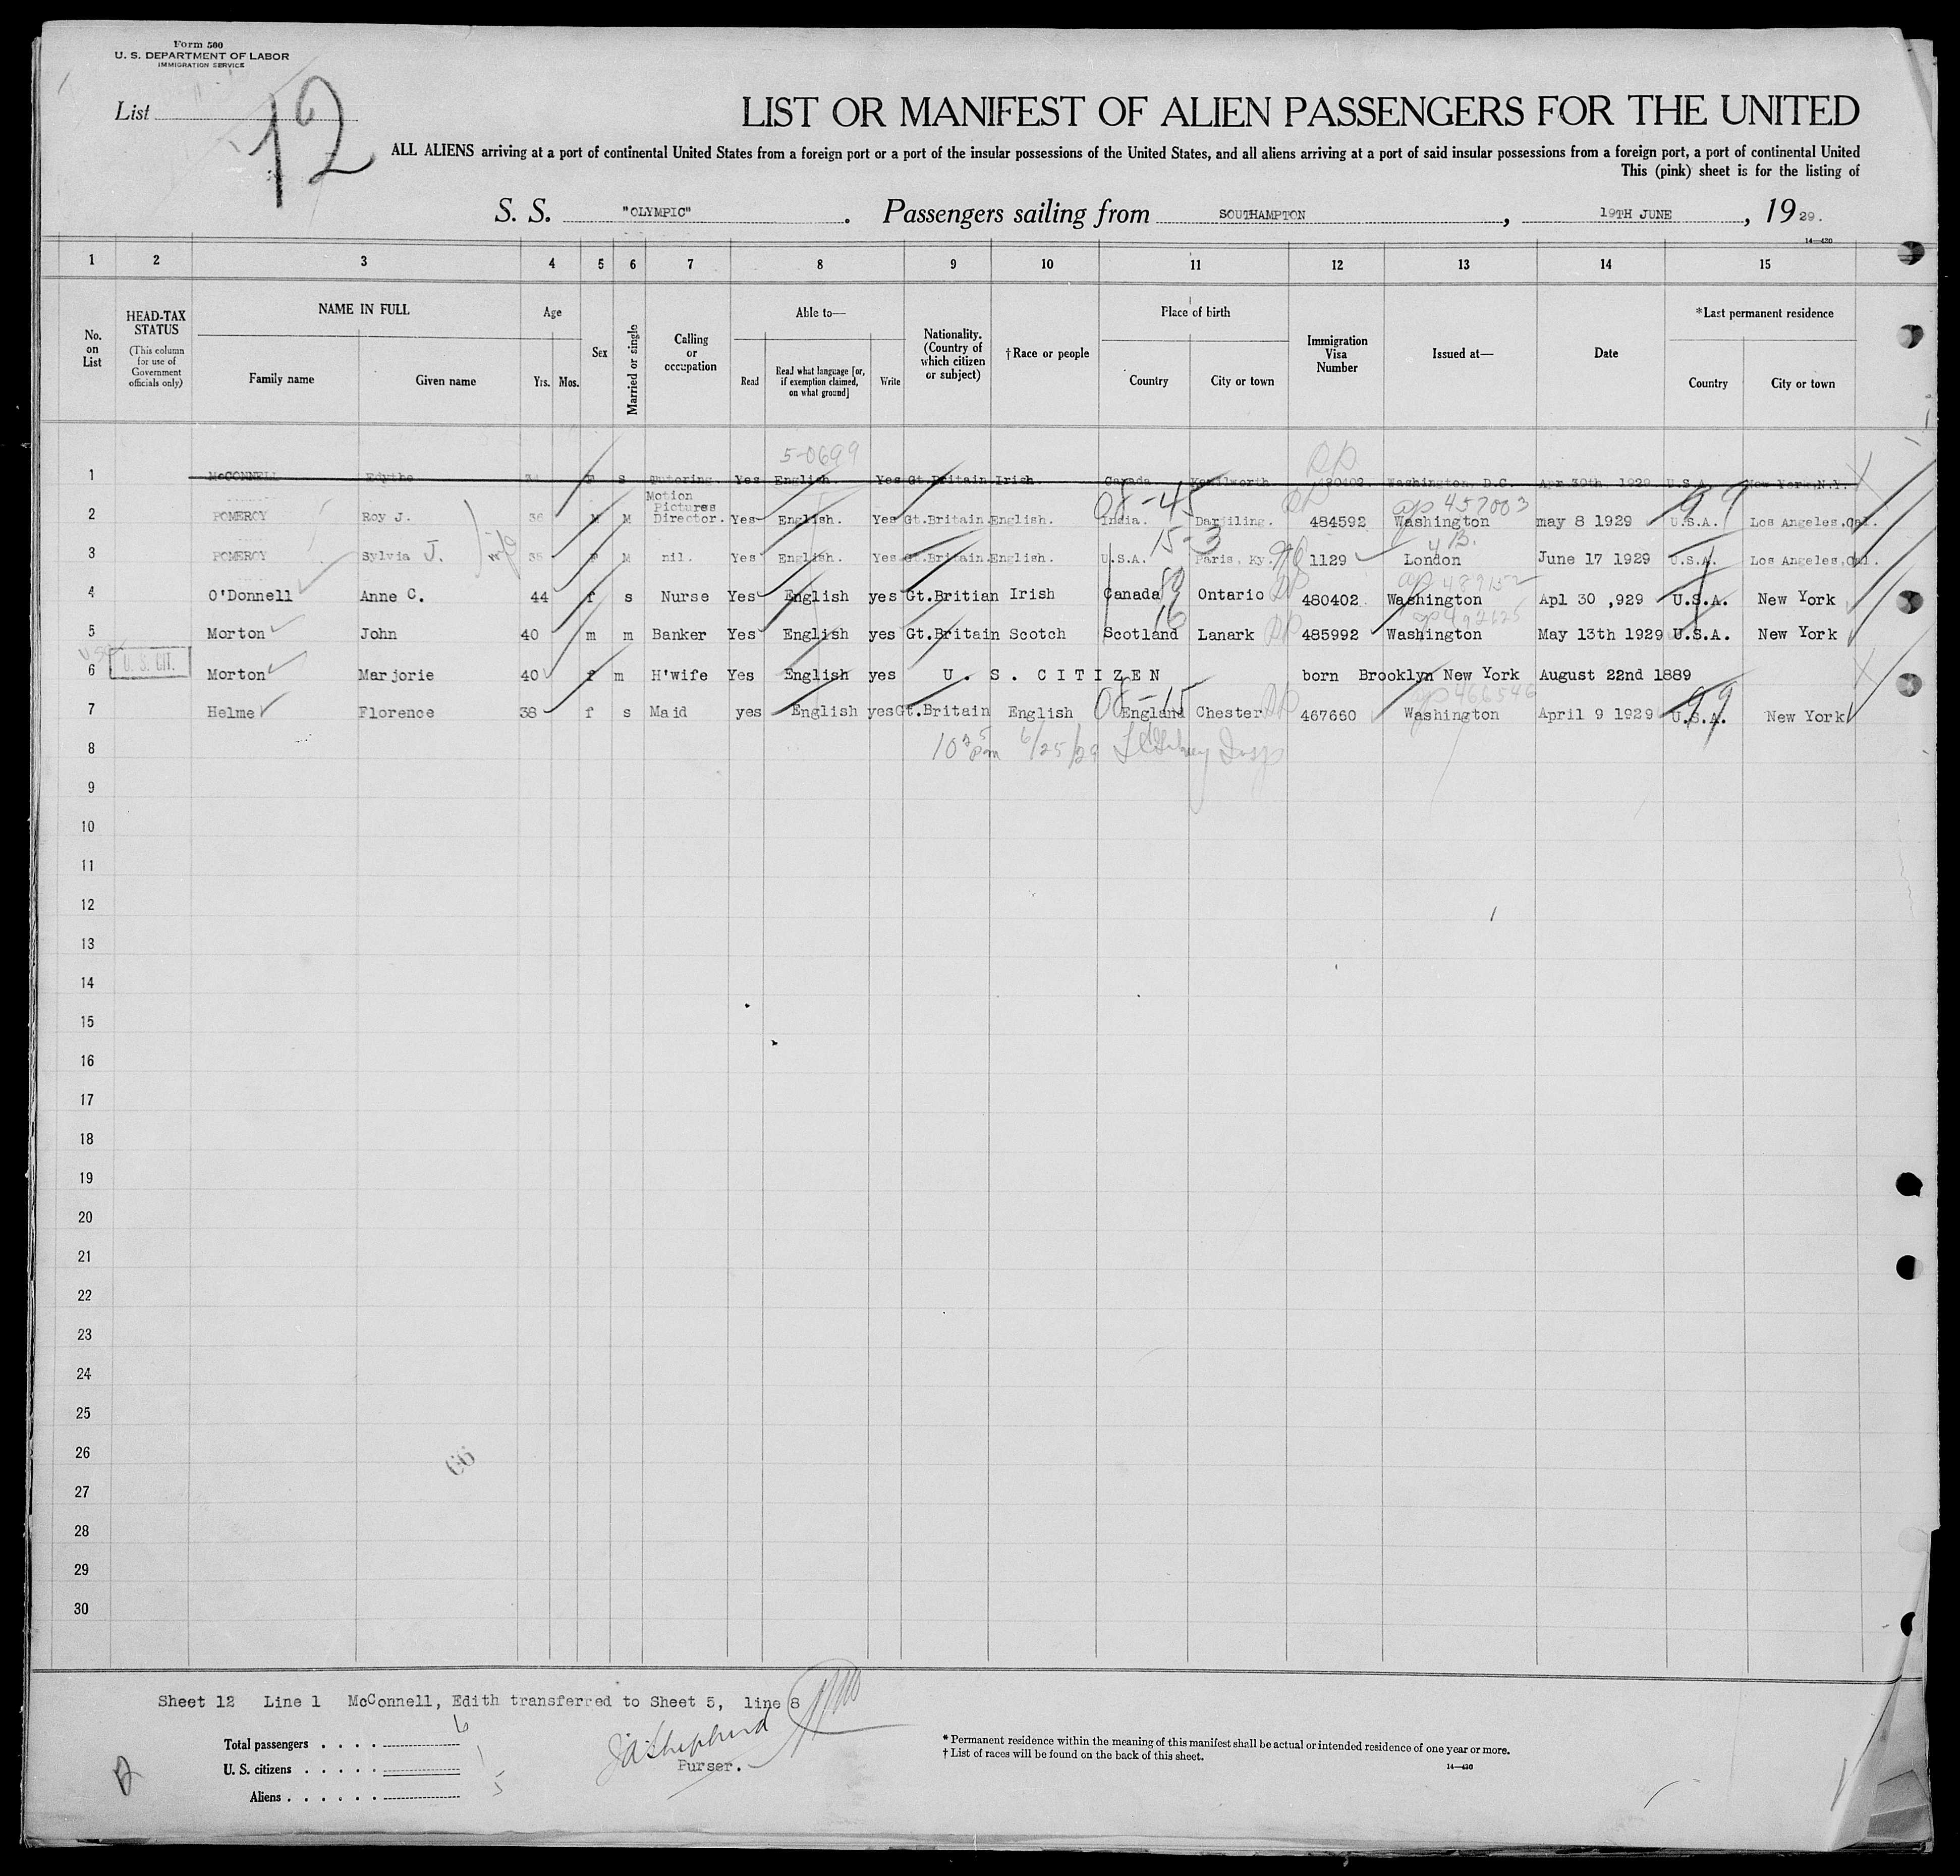 Form 500
U. S. DEPARTMENT OF LABOR
IMMIGRATION SERVICE
List 12
LIST OR MANIFEST OF ALIEN PASSENGERS FOR THE UNITED
ALL ALIENS arriving at a port of continental United States from a foreign port or a port of the insular possessions of the United States, and all aliens arriving at a port of said insular possessions from a foreign port, a port of continental United
This (pink) sheet is for the listing of
S. S. "OLYMPIC". Passengers sailing from SOUTHAMPTON, 19TH JUNE, 1929.
14—420
1 2 3 4 5 6 7 8 9 10 11 12 13 14 15
No. on List
HEAD-TAX STATUS (This column for use of Government officials only)
NAME IN FULL Family name Given name
Age Yrs. Mos.
Sex
Married or single
Calling or occupation
Able to— Read Read what language [or, if exemption claimed, on what ground] Write
Nationality. (Country of which citizen or subject)
†Race or people
Place of birth Country City or town
Immigration Visa Number
Issued at—
Date
*Last permanent residence Country City or town
5-0699
1 McCONNELL Edythe 34 F S Tutoring. Yes English. Yes Gt.Britain. Irish. Canada Kenilworth 480402 Washington, D.C. Apr 30th. 1929 U.S.A. New York, N.Y.
08-45 99
2 POMEROY Roy J. 36 M M Motion Pictures Director. Yes English. Yes Gt.Britain. English. India. Darjiling. 484592 Washington may 8 1929 U.S.A. Los Angeles, Cal.
15-3 4 B.
3 POMEROY Sylvia J. 35 F M nil. Yes English. Yes Gt.Britain. English. U.S.A. Paris, Ky. 1129 London June 17 1929 U.S.A. Los Angeles, Cal.
4 O'Donnell Anne C. 44 f s Nurse Yes English yes Gt.Britian Irish Canada Ontario 480402 Washington Apl 30 ,929 U.S.A. New York
5 Morton John 40 m m Banker Yes English yes Gt.Britain Scotch Scotland Lanark 485992 Washington May 13th 1929 U.S.A. New York
6 U. S. CIT. Morton Marjorie 40 f m H'wife Yes English yes U. S. CITIZEN born Brooklyn New York August 22nd 1889
08-15 99
7 Helme Florence 38 f s Maid yes English yes Gt.Britain English England Chester 467660 Washington April 9 1929 U.S.A. New York
8 6/25/29
9
10
11
12
13
14
15
16
17
18
19
20
21
22
23
24
25
26
27
28
29
30
Sheet 12 Line 1 McConnell, Edith transferred to Sheet 5, line 8
Total passengers . . . . 6
U. S. citizens . . . . . 1
Aliens . . . . . . 5
Purser.
* Permanent residence within the meaning of this manifest shall be actual or intended residence of one year or more.
† List of races will be found on the back of this sheet.
14—420